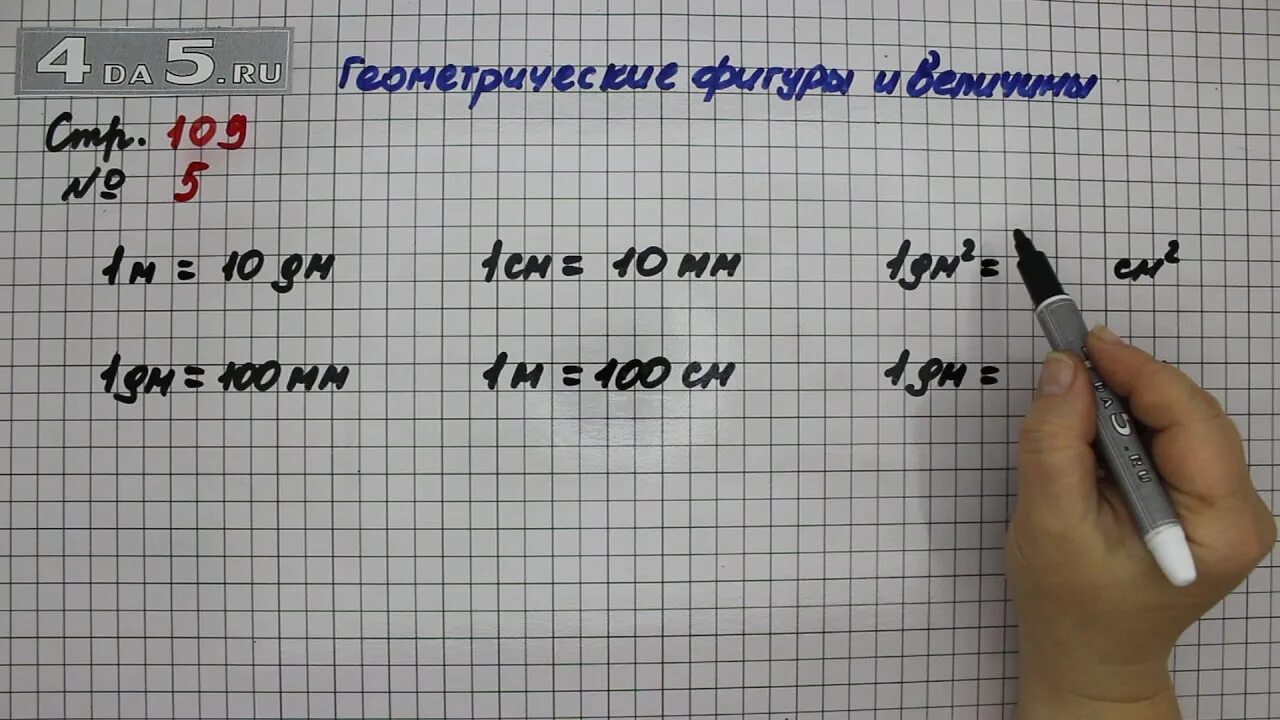 4DA5.RU
Геометрические фигуры и величины
Стр. 109
№ 5
1м = 10 дм 1см = 10 мм 1дм² = см²
1дм = 100 мм 1м = 100 см 1дм =